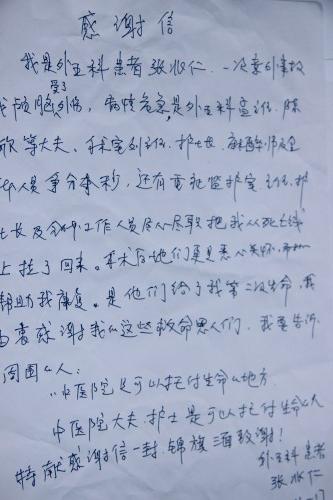 感谢信
我是外五科患者张兆仁 一次意外事故
受了
我颅脑外伤，病情危急是外五科 主任 陈
欣等大夫、手术室刘主任，护士长 麻醉师及全
体人员争分夺秒，还有重症监护室 主任 护
士长及全体工作人员尽心尽职把我从死亡线
上拉了回来。手术后他们更是悉心关怀
帮助我康复。是他们给了我第二次生命，我
由衷感谢我的这些救命恩人们，我要告诉
周围的人：
中医院是可以托付生命的地方
中医院大夫、护士是可以托付生命的人
特献感谢信一封 锦旗三面致谢！
外五科患者
张兆仁